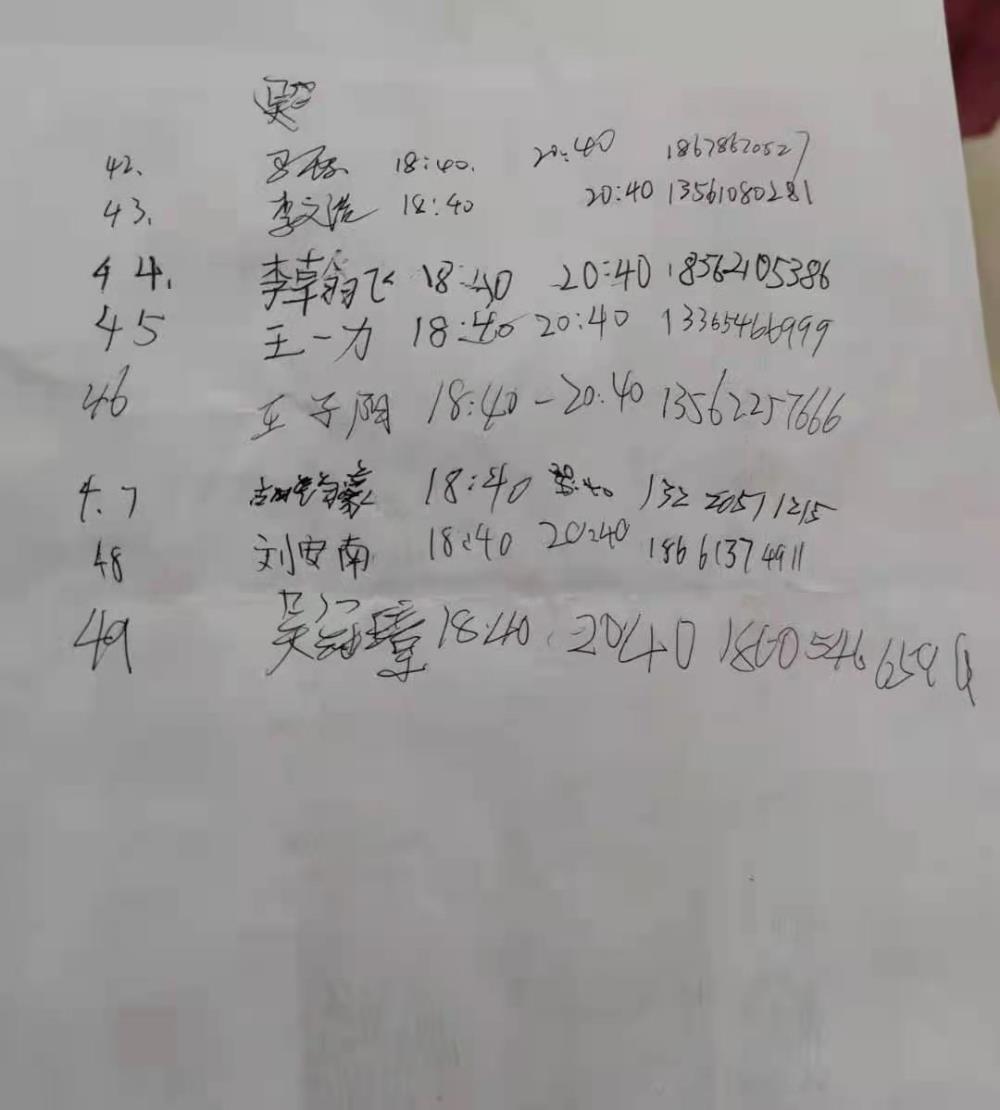 吴
42. 18:40. 20:40 18678620527
43. 李文浩 18:40 20:40 13561080281
44. 李卓翰飞 18:40 20:40 18562105386
45 王一力 18:40 20:40 13365466999
46 王子阳 18:40-20:40 13562257666
4.7 18:40 20:40 13220571215
48 刘安南 18:40 20:40 18661374911
49 吴冠璋 18:40. 2040 18605466589